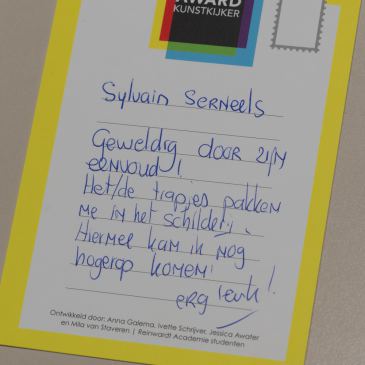 AWARD
KUNSTKIJKER
Sylvain Serneels
Geweldig door zijn
eenvoud!
Het/de trapjes pakken
me in het schilderij.
Hiermee kan ik nog
hogerop komen!
erg leuk!
Ontwikkeld door: Anna Galema, Ivette Schrijver, Jessica Awater
en Mila van Staveren | Reinwardt Academie studenten